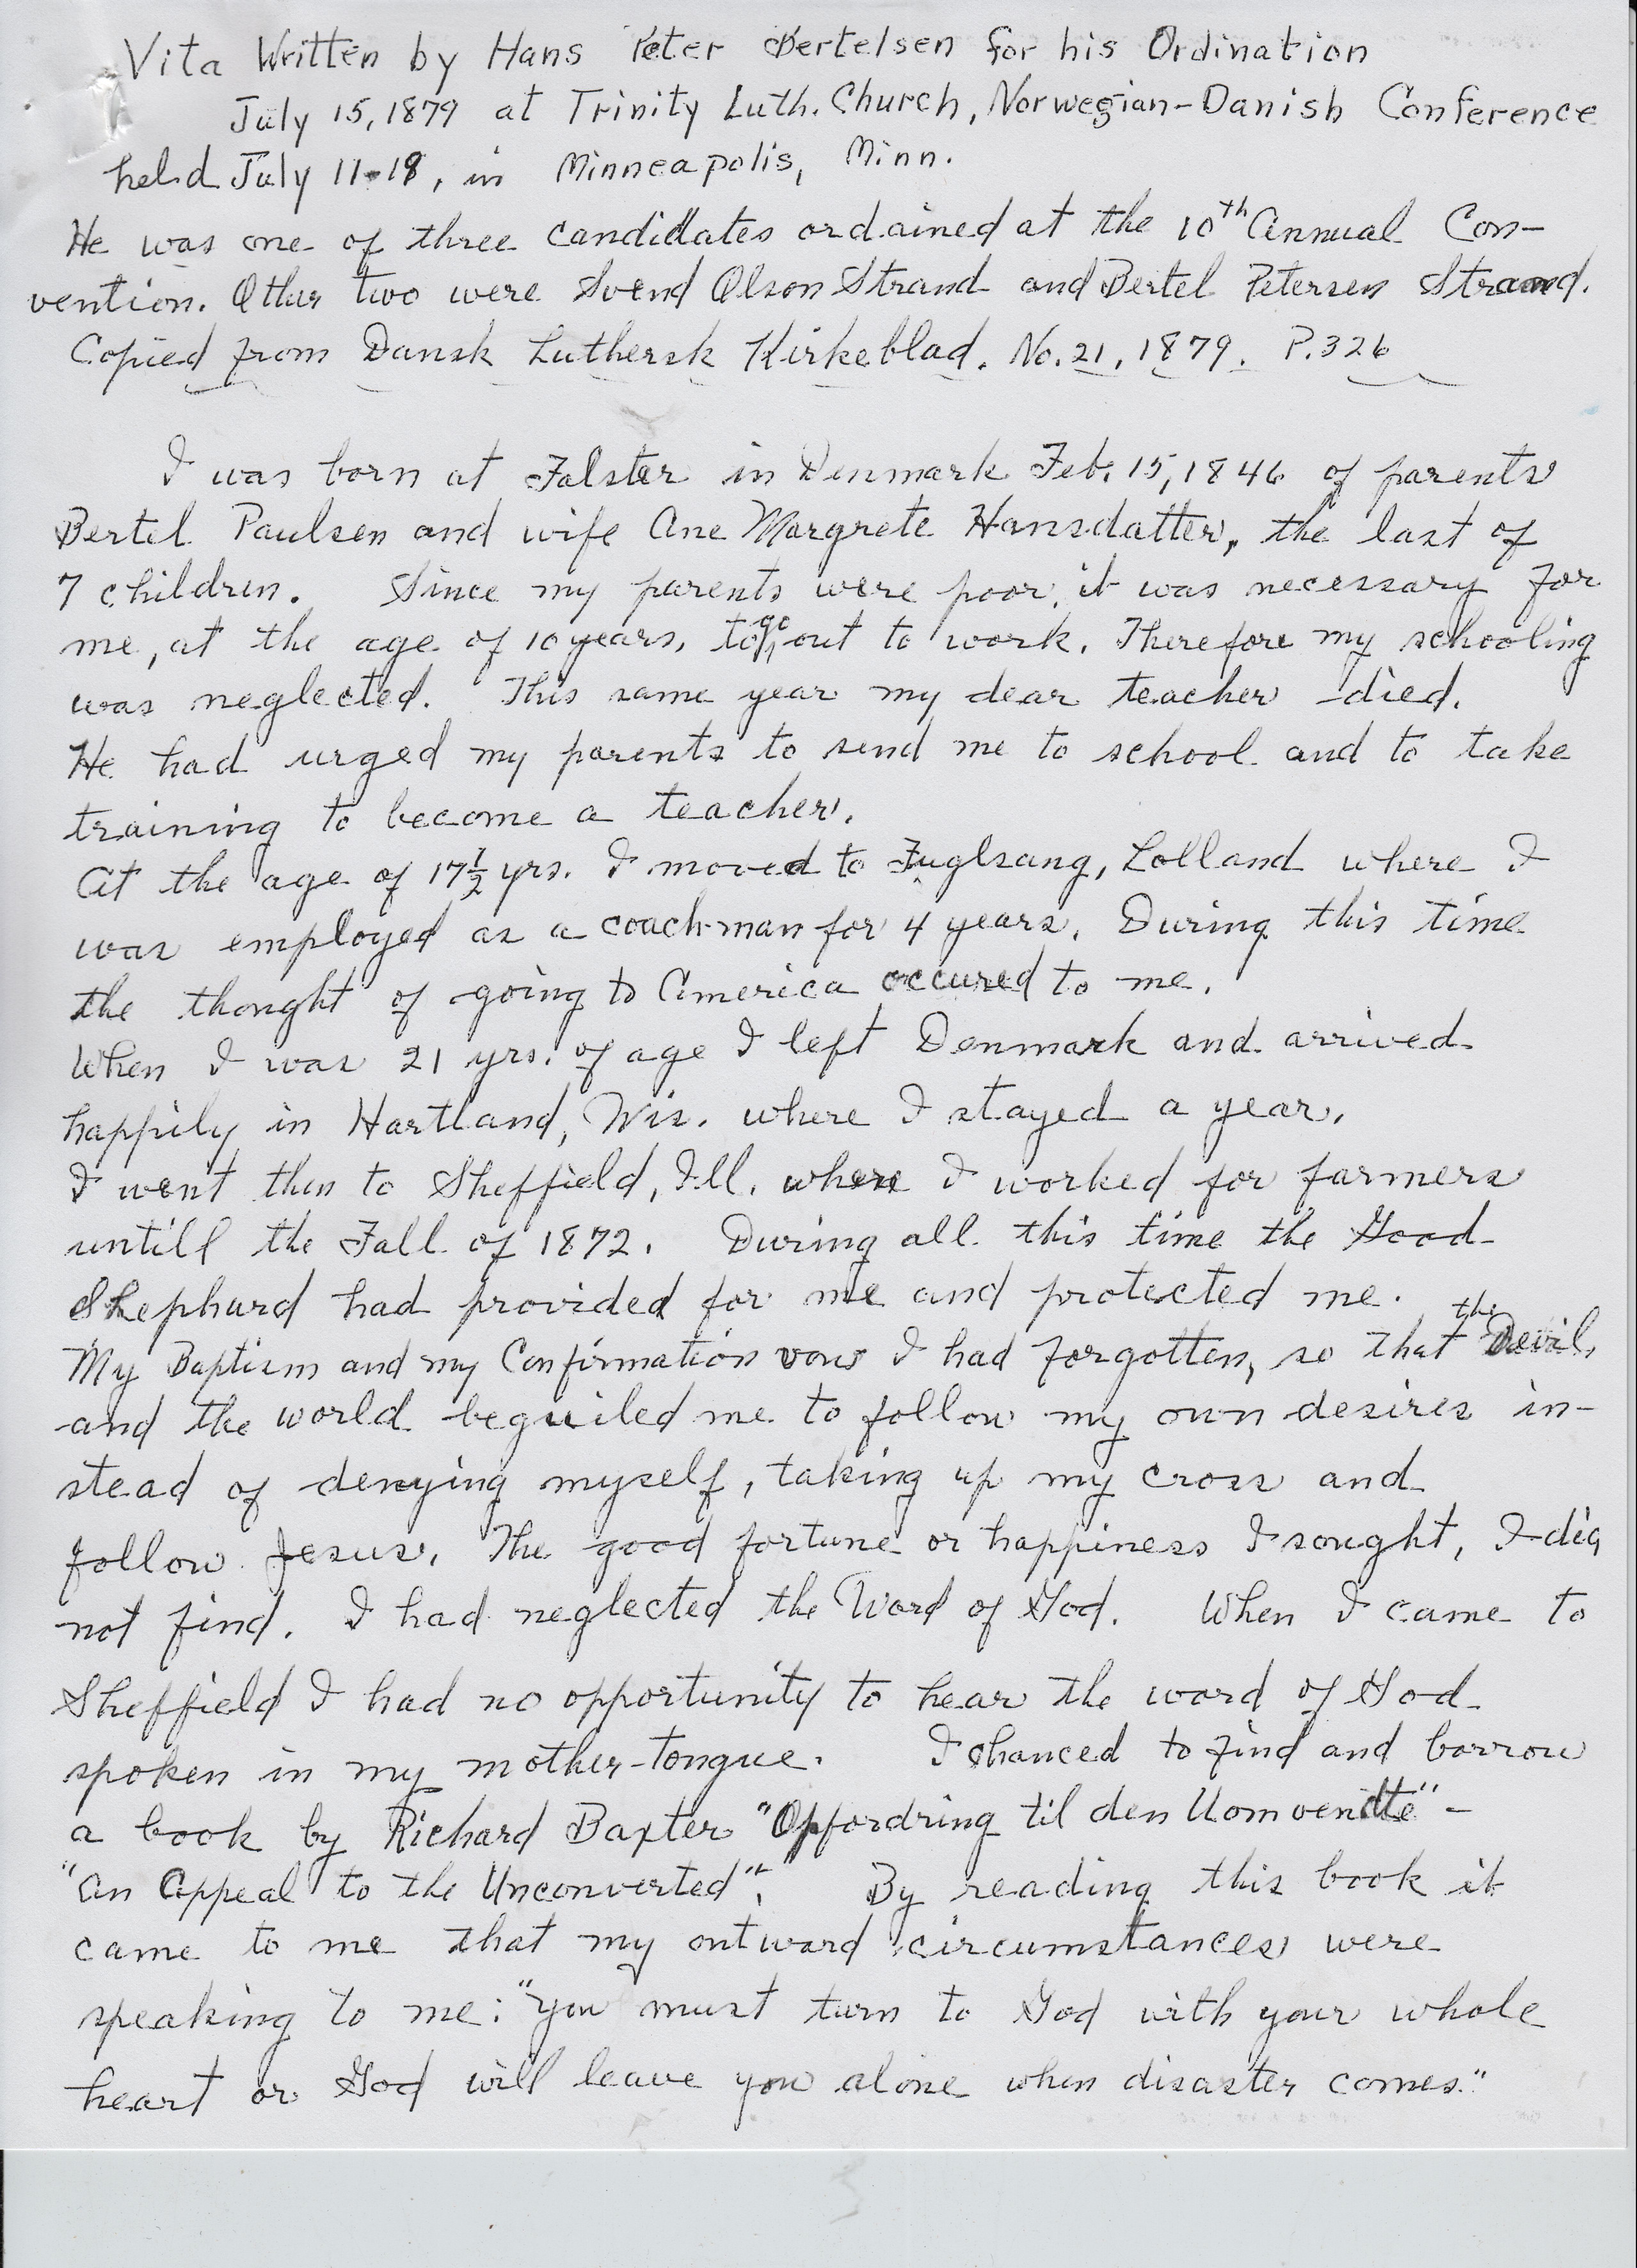 Vita Written by Hans Peter Bertelsen for his Ordination
July 15, 1879 at Trinity Luth. Church, Norwegian-Danish Conference
held July 11-18, in Minneapolis, Minn.
He was one of three candidates ordained at the 10th Annual Con-
vention. Other two were Svend Olson Strand and Bertel Petersen Strand.
Copied from Dansk Luthersk Kirkeblad. No. 21, 1879. P. 326
I was born at Falster in Denmark Feb. 15, 1846 of parents
Bertel Paulsen and wife Ane Margrete Hansdatter, the last of
7 children. Since my parents were poor, it was necessary for
me, at the age of 10 years, to go out to work. Therefore my schooling
was neglected. This same year my dear teacher died.
He had urged my parents to send me to school and to take
training to become a teacher.
At the age of 17½ yrs. I moved to Fuglsang, Lolland where I
was employed as a coach-man for 4 years. During this time
the thought of going to America occured to me.
When I was 21 yrs. of age I left Denmark and arrived
happily in Hartland, Wis. where I stayed a year.
I went then to Sheffield, Ill. where I worked for farmers
untill the Fall of 1872. During all this time the Good
Shephard had provided for me and protected me.
My Baptism and my Confirmation vows I had forgotten, so that the Devil,
and the world beguiled me to follow my own desires in-
stead of denying myself, taking up my cross and
follow Jesus. The good fortune or happiness I sought, I did
not find. I had neglected the Word of God. When I came to
Sheffield I had no opportunity to hear the word of God
spoken in my mother-tongue. I chanced to find and borrow
a book by Richard Baxter "Opfordring til den Uomvendte" -
"An Appeal to the Unconverted". By reading this book it
came to me that my outward circumstances were
speaking to me: "you must turn to God with your whole
heart or God will leave you alone when disaster comes."